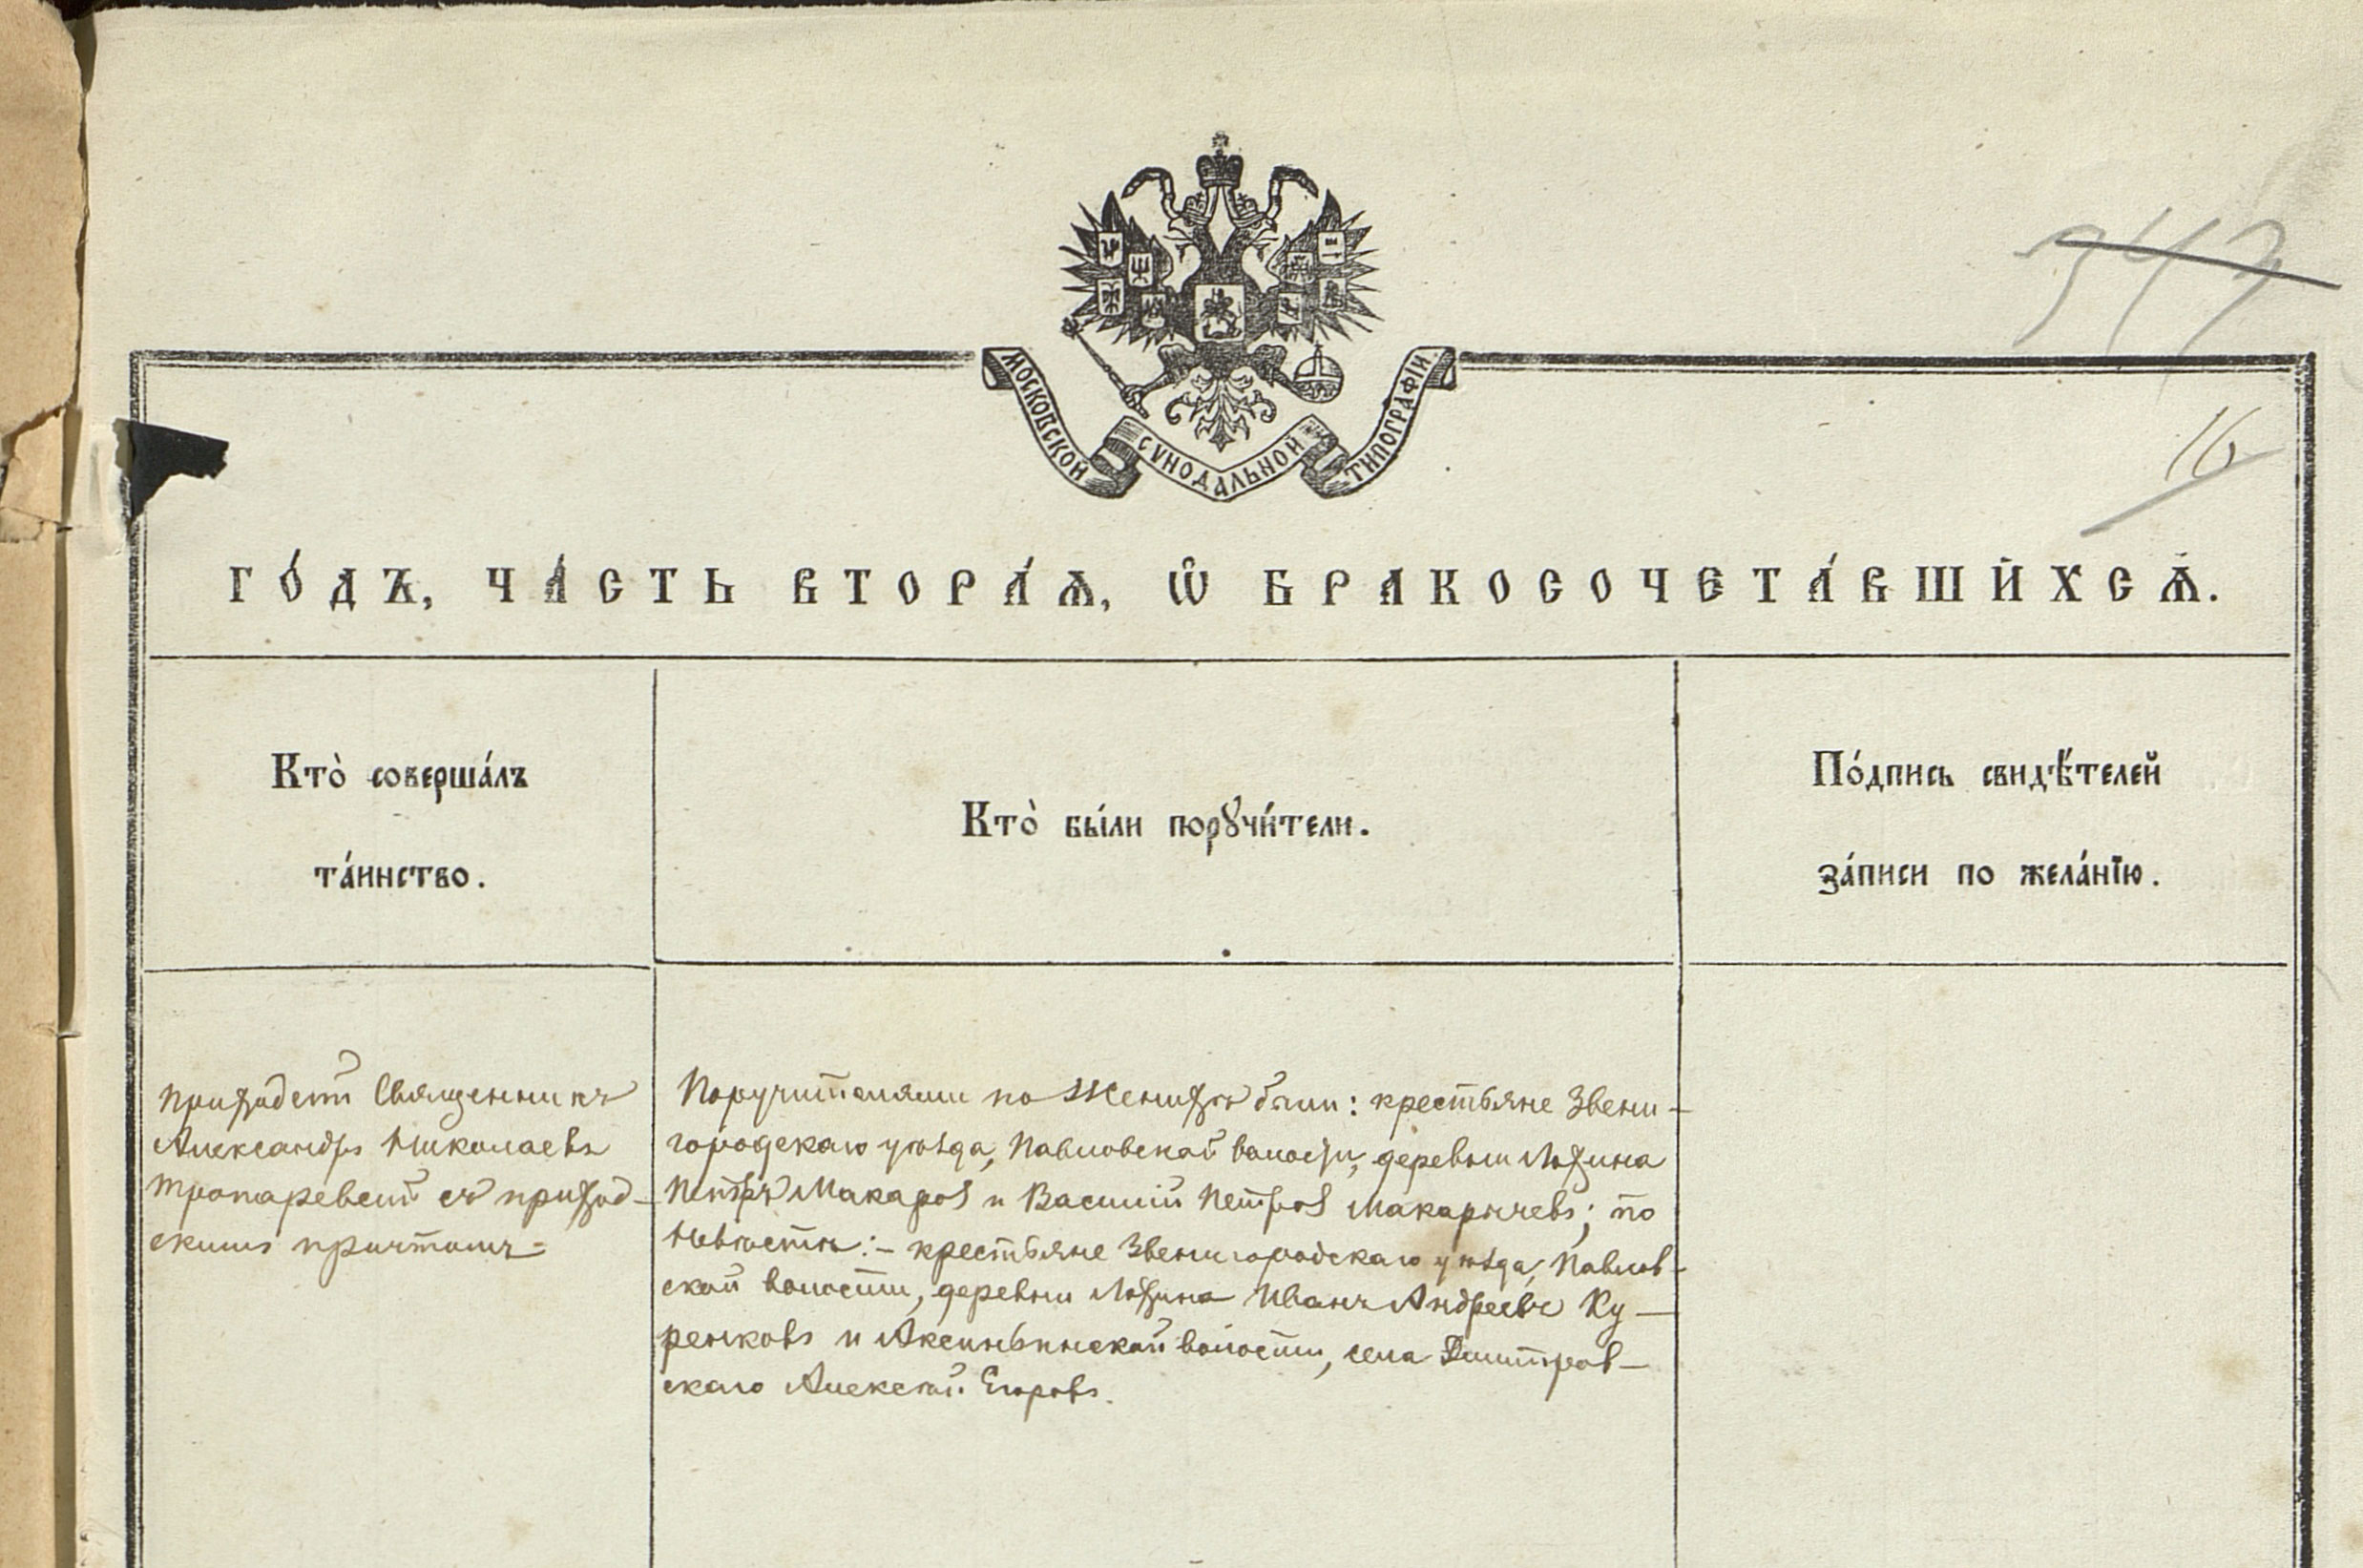 347
МОСКОВСКОЙ СѴНОДАЛЬНОЙ ТИПОГРАФІИ
16
ГО́ДЪ, ЧА́СТЬ ВТОРА́Ѧ, Ѡ҆ БРАКОСОЧЕТА́ВШИХСѦ.
Кто̀ соверша́лъ
та́инство.
Кто̀ бы́ли порꙋчи́тели.
По́дпись свидѣ́телей
за́писи по жела́нїю.
Приходскій Священникъ
Александръ Николаевъ
Тропаревскій съ приход-
скимъ причтомъ=
Поручителями по женихѣ были: крестьяне Звени-
городскаго уѣзда, Павловской волости, деревни Лохина
Петръ Макаровъ и Василій Петровъ Макарычевъ; по
невѣстѣ:- крестьяне Звенигородскаго уѣзда, Павлов-
ской волости, деревни Лохина Иванъ Андреевъ Ку-
ренковъ и Аксиньинской волости, села Дмитров-
скаго Алексѣй Егоровъ.